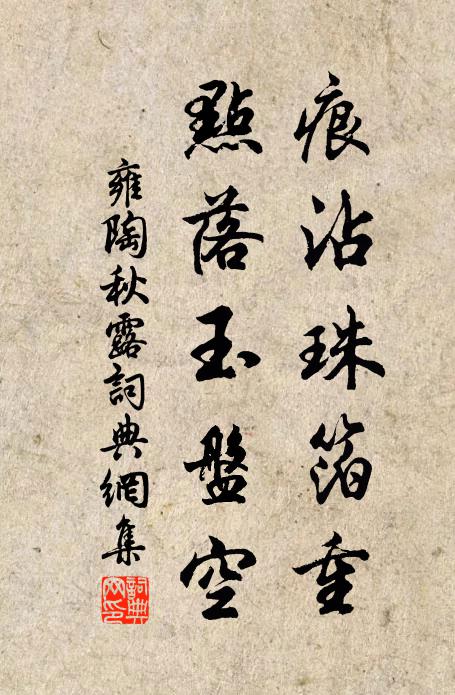 痕沾珠箔重
點落玉盤空
雍陶秋露詞典網集
詞典網印